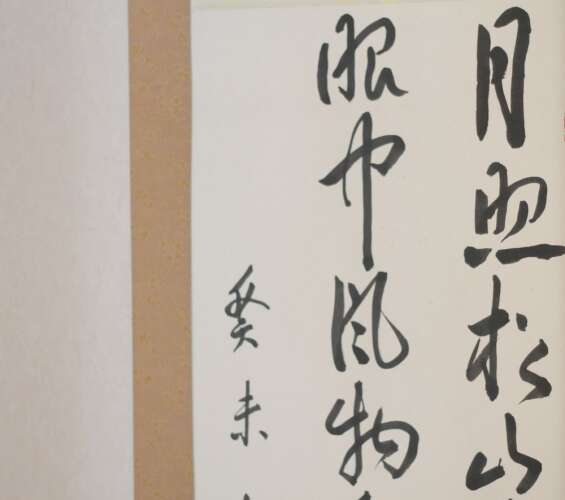 月照松山
眼中風物
癸未